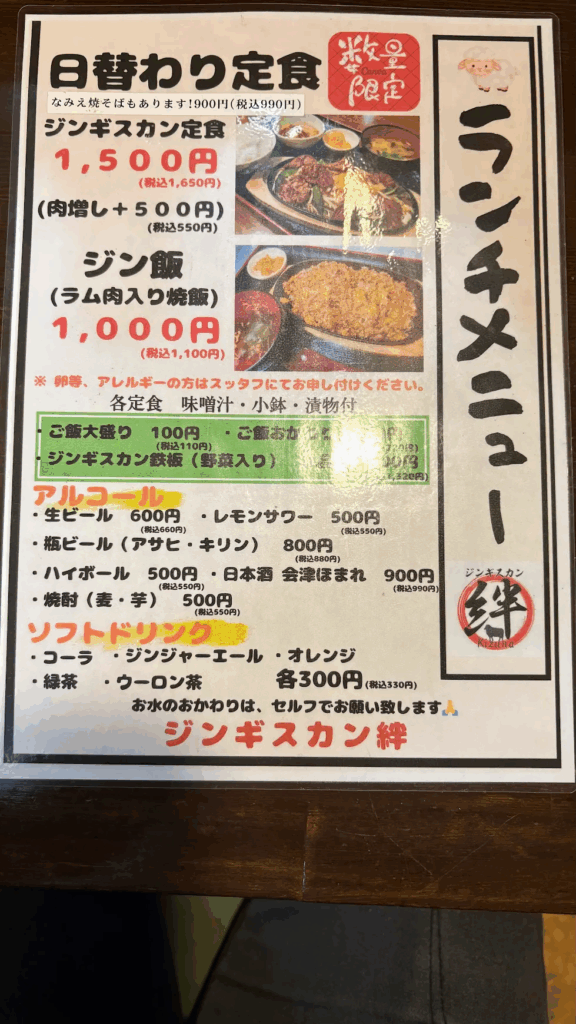 日替わり定食
数量
限定
なみえ焼そばもあります!900円(税込990円)
ジンギスカン定食
1,500円
(税込1,650円)
(肉増し+500円)
(税込550円)
ジン飯
(ラム肉入り焼飯)
1,000円
(税込1,100円)
※ 卵等、アレルギーの方はスッタフにてお申し付けください。
各定食 味噌汁・小鉢・漬物付
・ご飯大盛り 100円 ・ご飯おかわり
(税込110円)
・ジンギスカン鉄板(野菜入り)
1,320円)
アルコール
・生ビール 600円 ・レモンサワー 500円
(税込660円) (税込550円)
・瓶ビール(アサヒ・キリン) 800円
(税込880円)
・ハイボール 500円 ・日本酒 会津ほまれ 900円
(税込550円) (税込990円)
・焼酎(麦・芋) 500円
(税込550円)
ソフトドリンク
・コーラ ・ジンジャーエール ・オレンジ
・緑茶 ・ウーロン茶 各300円(税込330円)
お水のおかわりは、セルフでお願い致します🙏
ジンギスカン絆
ランチメニュー
ジンギスカン
絆
Kizuna